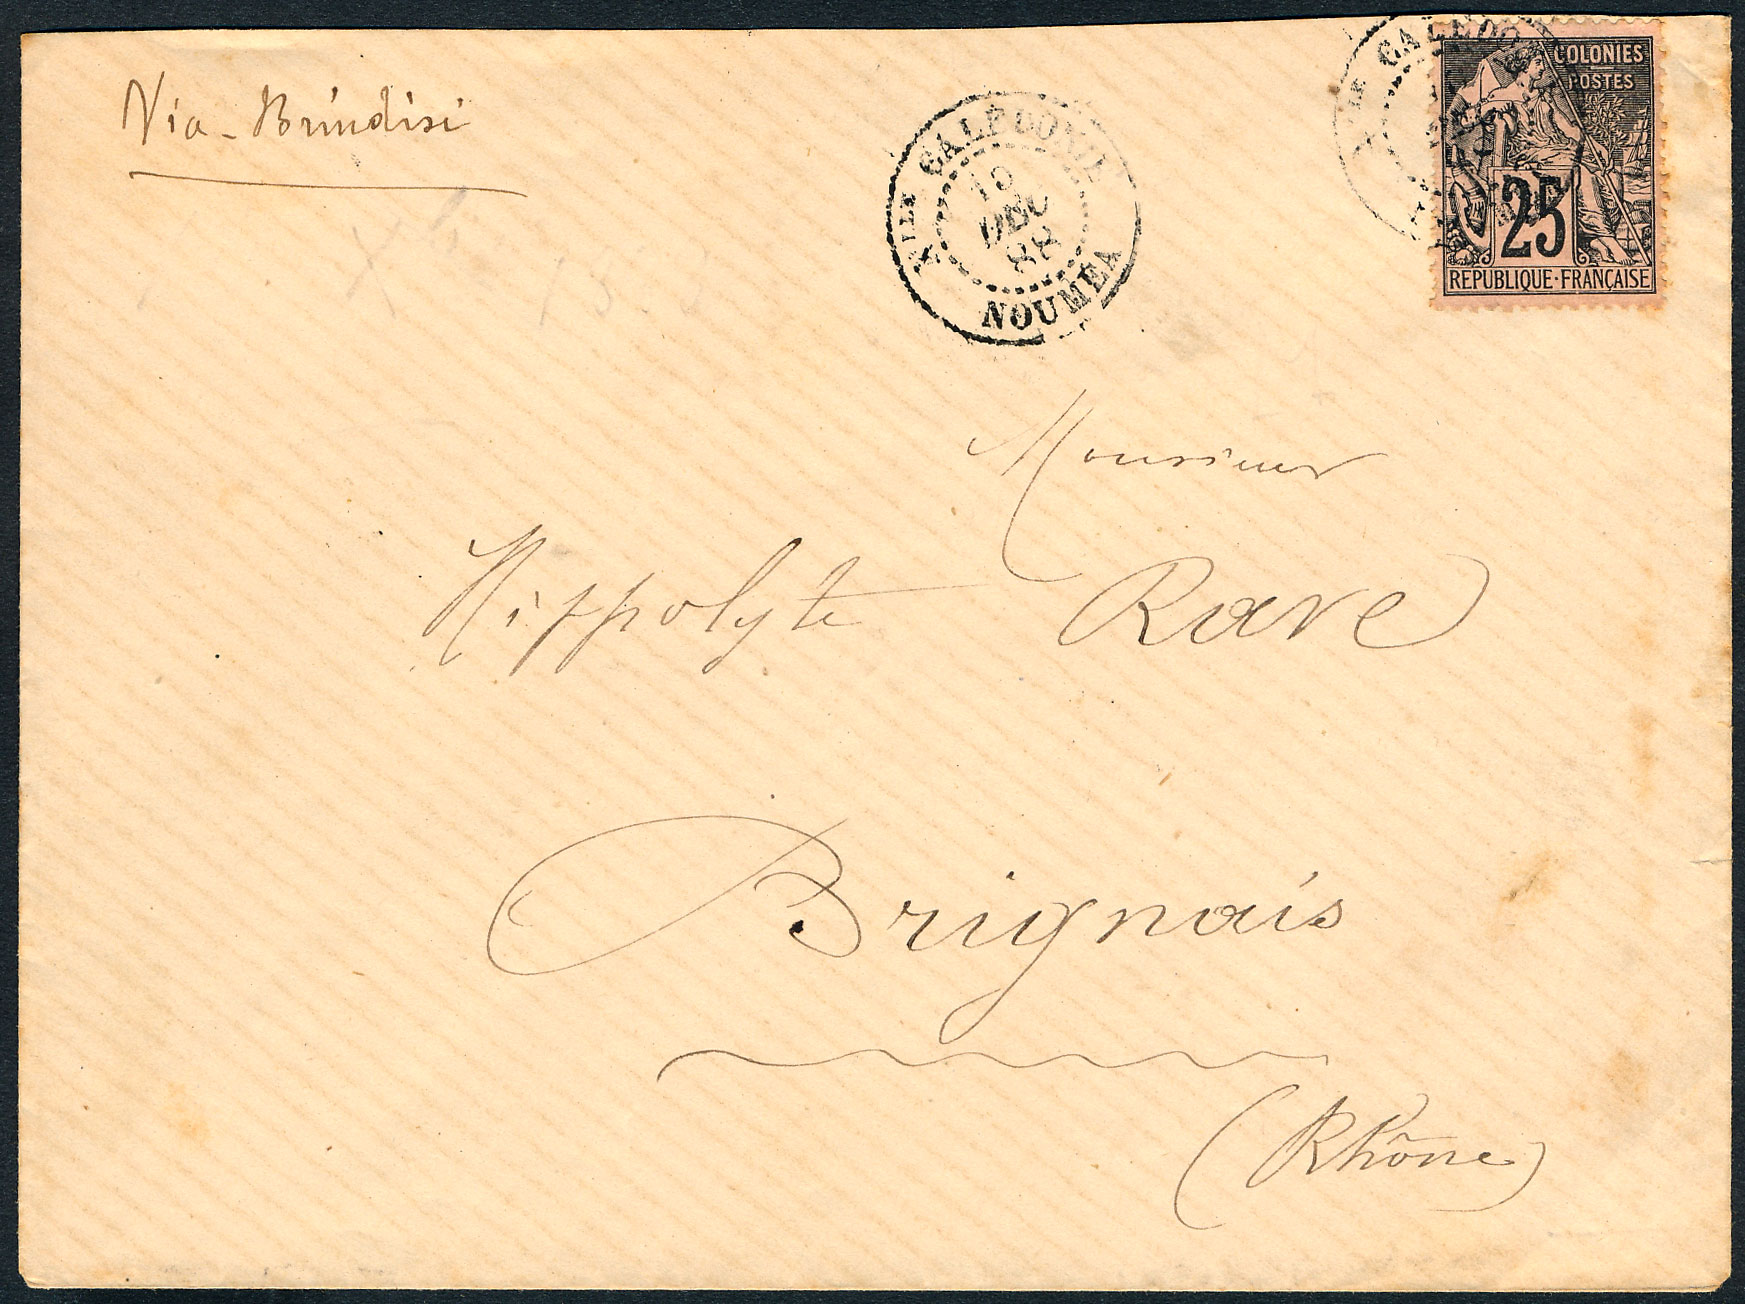 Via - Brindisi
Nlle CALEDONIE
DEC
88
NOUMEA
CALEDO
COLONIES
POSTES
25
REPUBLIQUE·FRANÇAISE
Monsieur
Hippolyte Rave
Brignais
(Rhône)